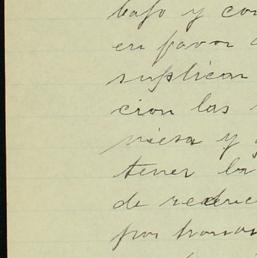 bajo y con
en favor
suplican
cion las
niera y
tener la
de reduc
por honor